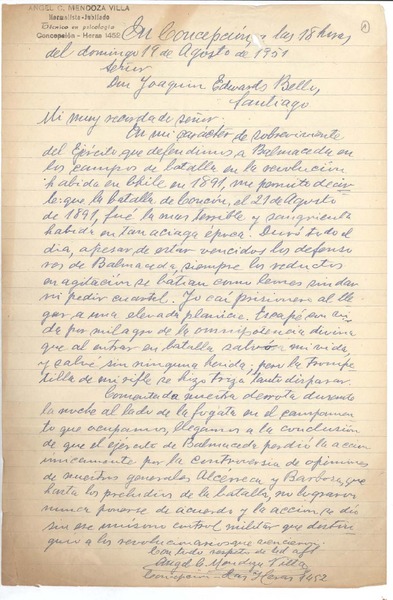 ANGEL C. MENDOZA VILLA
Normalista-Jubilado
Técnico en psicología
Concepción - Heras 1452
1
En Concepción, a las 18 horas,
del domingo 19 de Agosto de 1951
Señor
Don Joaquin Edwards Bello,
Santiago
Mi muy recordado señor:
En mi carácter de sobreviviente
del Ejército, que defendimos a Balmaceda en
los campos de batalla en la revolución
habida en Chile en 1891, me permito decir
le: que la batalla de Concón, el 21 de Agosto
de 1891, fué la mas terrible y sangrienta
habida en tan aciaga época! Duró todo el
día, apesar de estar vencidos los defenso
res de Balmaceda, siempre los reductos
en agitación se batían como leones sin dar
ni pedir cuartel. Yo caí prisionero al lle
gar a una elevada planicie. Escapé con vi
da por milagro de la omnipotencia divina
que al entrar en batalla salvó mi vida,
y salvé sin ninguna herida; pero la trompe
tilla de mi rifle se hizo triza tanto disparar.
Comentada nuestra derrota durante
la noche al lado de la fogata en el campamen
to que ocupamos, llegamos a la conclusión
de que el ejército de Balmaceda perdió la acción
unicamente por la controversia de opiniones
de nuestros generales Alcérreca y Barbosa, que
hasta los preludios de la batalla, no lograron
nunca ponerse de acuerdo y la acción se dió
sin ese unísono control militar que
a los revolucionarios que vencieron
Con todo respeto de Ud. aft
Angel C. Mendoza Villa
Concepción - Las Heras 1452